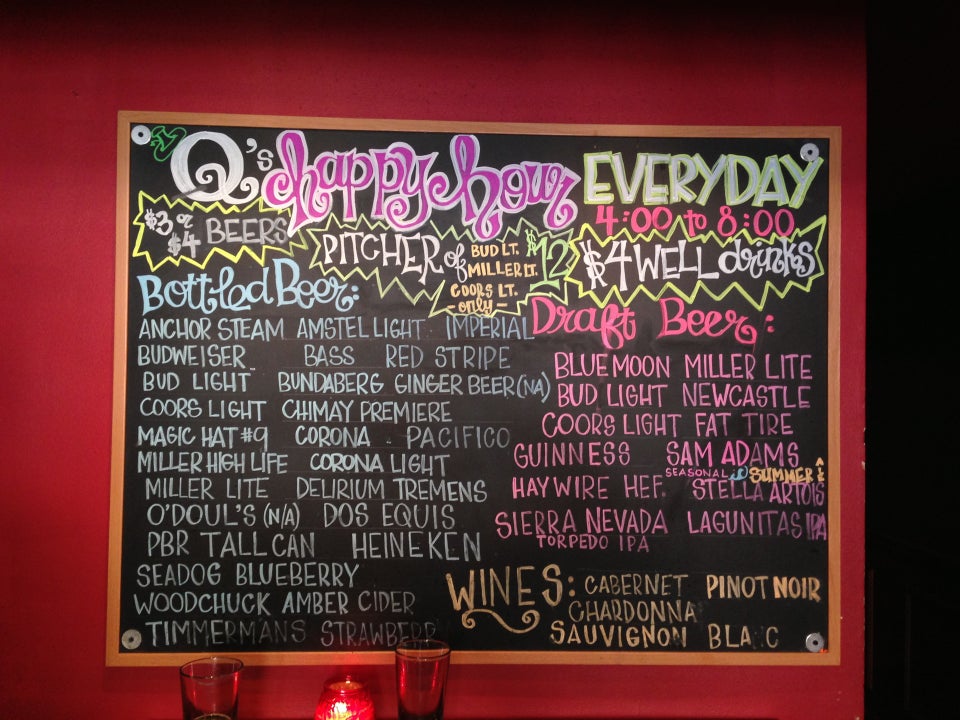 Q's happy hour EVERYDAY
4:00 to 8:00
$3 or $4 BEERS
PITCHER of BUD LT. MILLER LT. COORS LT. - only - $12
$4 WELL drinks
Bottled Beer:
ANCHOR STEAM AMSTEL LIGHT IMPERIAL
BUDWEISER BASS RED STRIPE
BUD LIGHT BUNDABERG GINGER BEER (NA)
COORS LIGHT CHIMAY PREMIERE
MAGIC HAT #9 CORONA PACIFICO
MILLER HIGH LIFE CORONA LIGHT
MILLER LITE DELIRIUM TREMENS
O'DOUL'S (N/A) DOS EQUIS
PBR TALL CAN HEINEKEN
SEADOG BLUEBERRY
WOODCHUCK AMBER CIDER
TIMMERMANS STRAWBERR
Draft Beer:
BLUE MOON MILLER LITE
BUD LIGHT NEWCASTLE
COORS LIGHT FAT TIRE
GUINNESS SAM ADAMS
SEASONAL SUMMER
HAYWIRE HEF. STELLA ARTOIS
SIERRA NEVADA LAGUNITAS IPA
TORPEDO IPA
WINES: CABERNET PINOT NOIR
CHARDONNA
SAUVIGNON BLANC